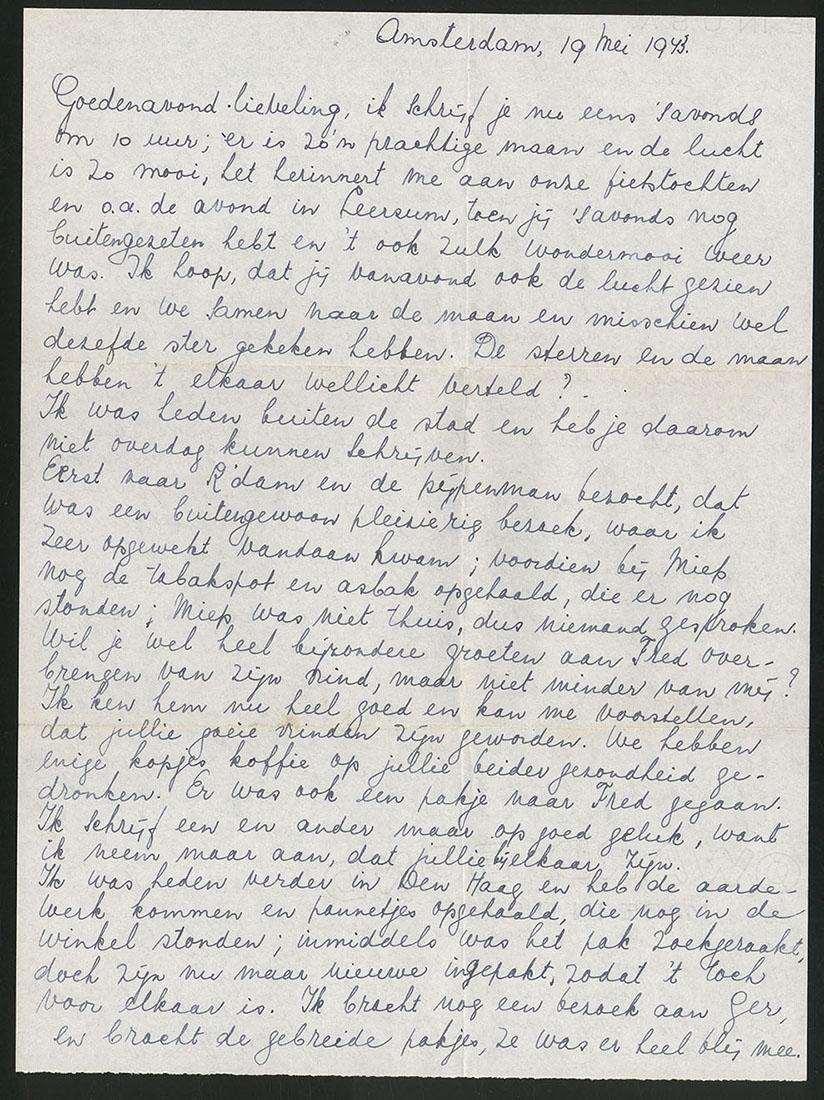 Amsterdam, 19 Mei 1943.
Goedenavond liebeling, ik schrijf je nu eens 's avonds
om 10 uur; er is zo'n prachtige maan en de lucht
is zo mooi, het herinnert me aan onze fietstochten
en o.a. de avond in Leersum, toen jij 's avonds nog
buitengezeten hebt en 't ook zulk wondermooi weer
was. Ik hoop, dat jij vanavond ook de lucht gezien
hebt en we samen naar de maan en misschien wel
dezefde ster gekeken hebben. De sterren en de maan
hebben 't elkaar wellicht verteld?
Ik was heden buiten de stad en heb je daarom
niet overdag kunnen schrijven.
Eerst naar R'dam en de pijpenman bezocht, dat
was een buitengewoon pleizierig bezoek, waar ik
zeer opgewekt vandaan kwam; voordien bij Miep
nog de tabakspot en asbak opgehaald, die er nog
stonden; Miep was niet thuis, dus niemand gesproken.
Wil je wel heel bijzondere groeten aan Fred over-
brengen van zijn vrind, maar niet minder van mij?
Ik ken hem nu heel goed en kan me voorstellen,
dat jullie goeie vrinden zijn geworden. We hebben
enige kopjes koffie op jullie beider gezondheid ge-
dronken. Er was ook een pakje naar Fred gegaan.
Ik schrijf een en ander maar op goed geluk, want
ik neem maar aan, dat jullie bijelkaar zijn.
Ik was heden verder in Den Haag en heb de aarde-
werk kommen en pannetjes opgehaald, die nog in de
winkel stonden; inmiddels was het pak zoekgeraakt,
doch zijn nu maar nieuwe ingepakt, zodat 't toch
voor elkaar is. Ik bracht nog een bezoek aan Ger,
en bracht de gebreide pakjes, ze was er heel blij mee.